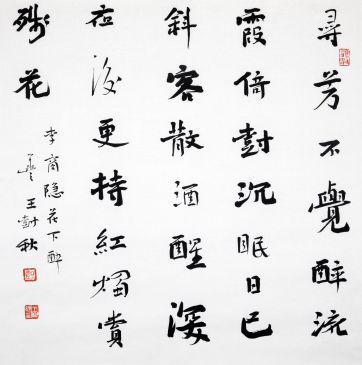 尋芳不覺醉流
霞倚樹沉眠日已
斜客散酒醒深
夜後更持紅燭賞
殘花
李商隐花下醉
王樹秋